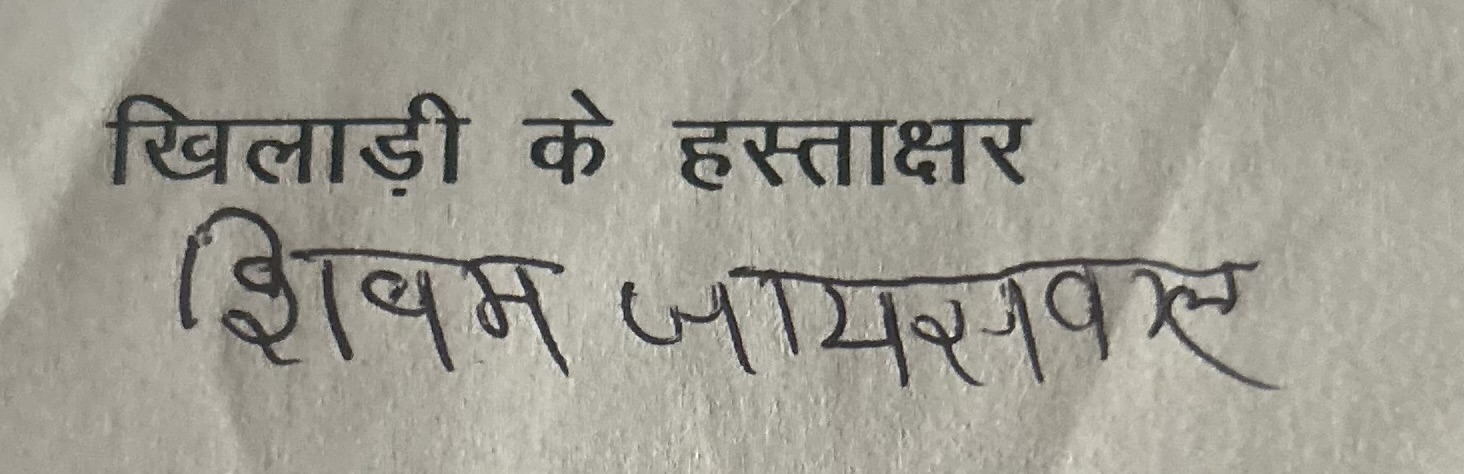 खिलाड़ी के हस्ताक्षर
शिवम जायसवल